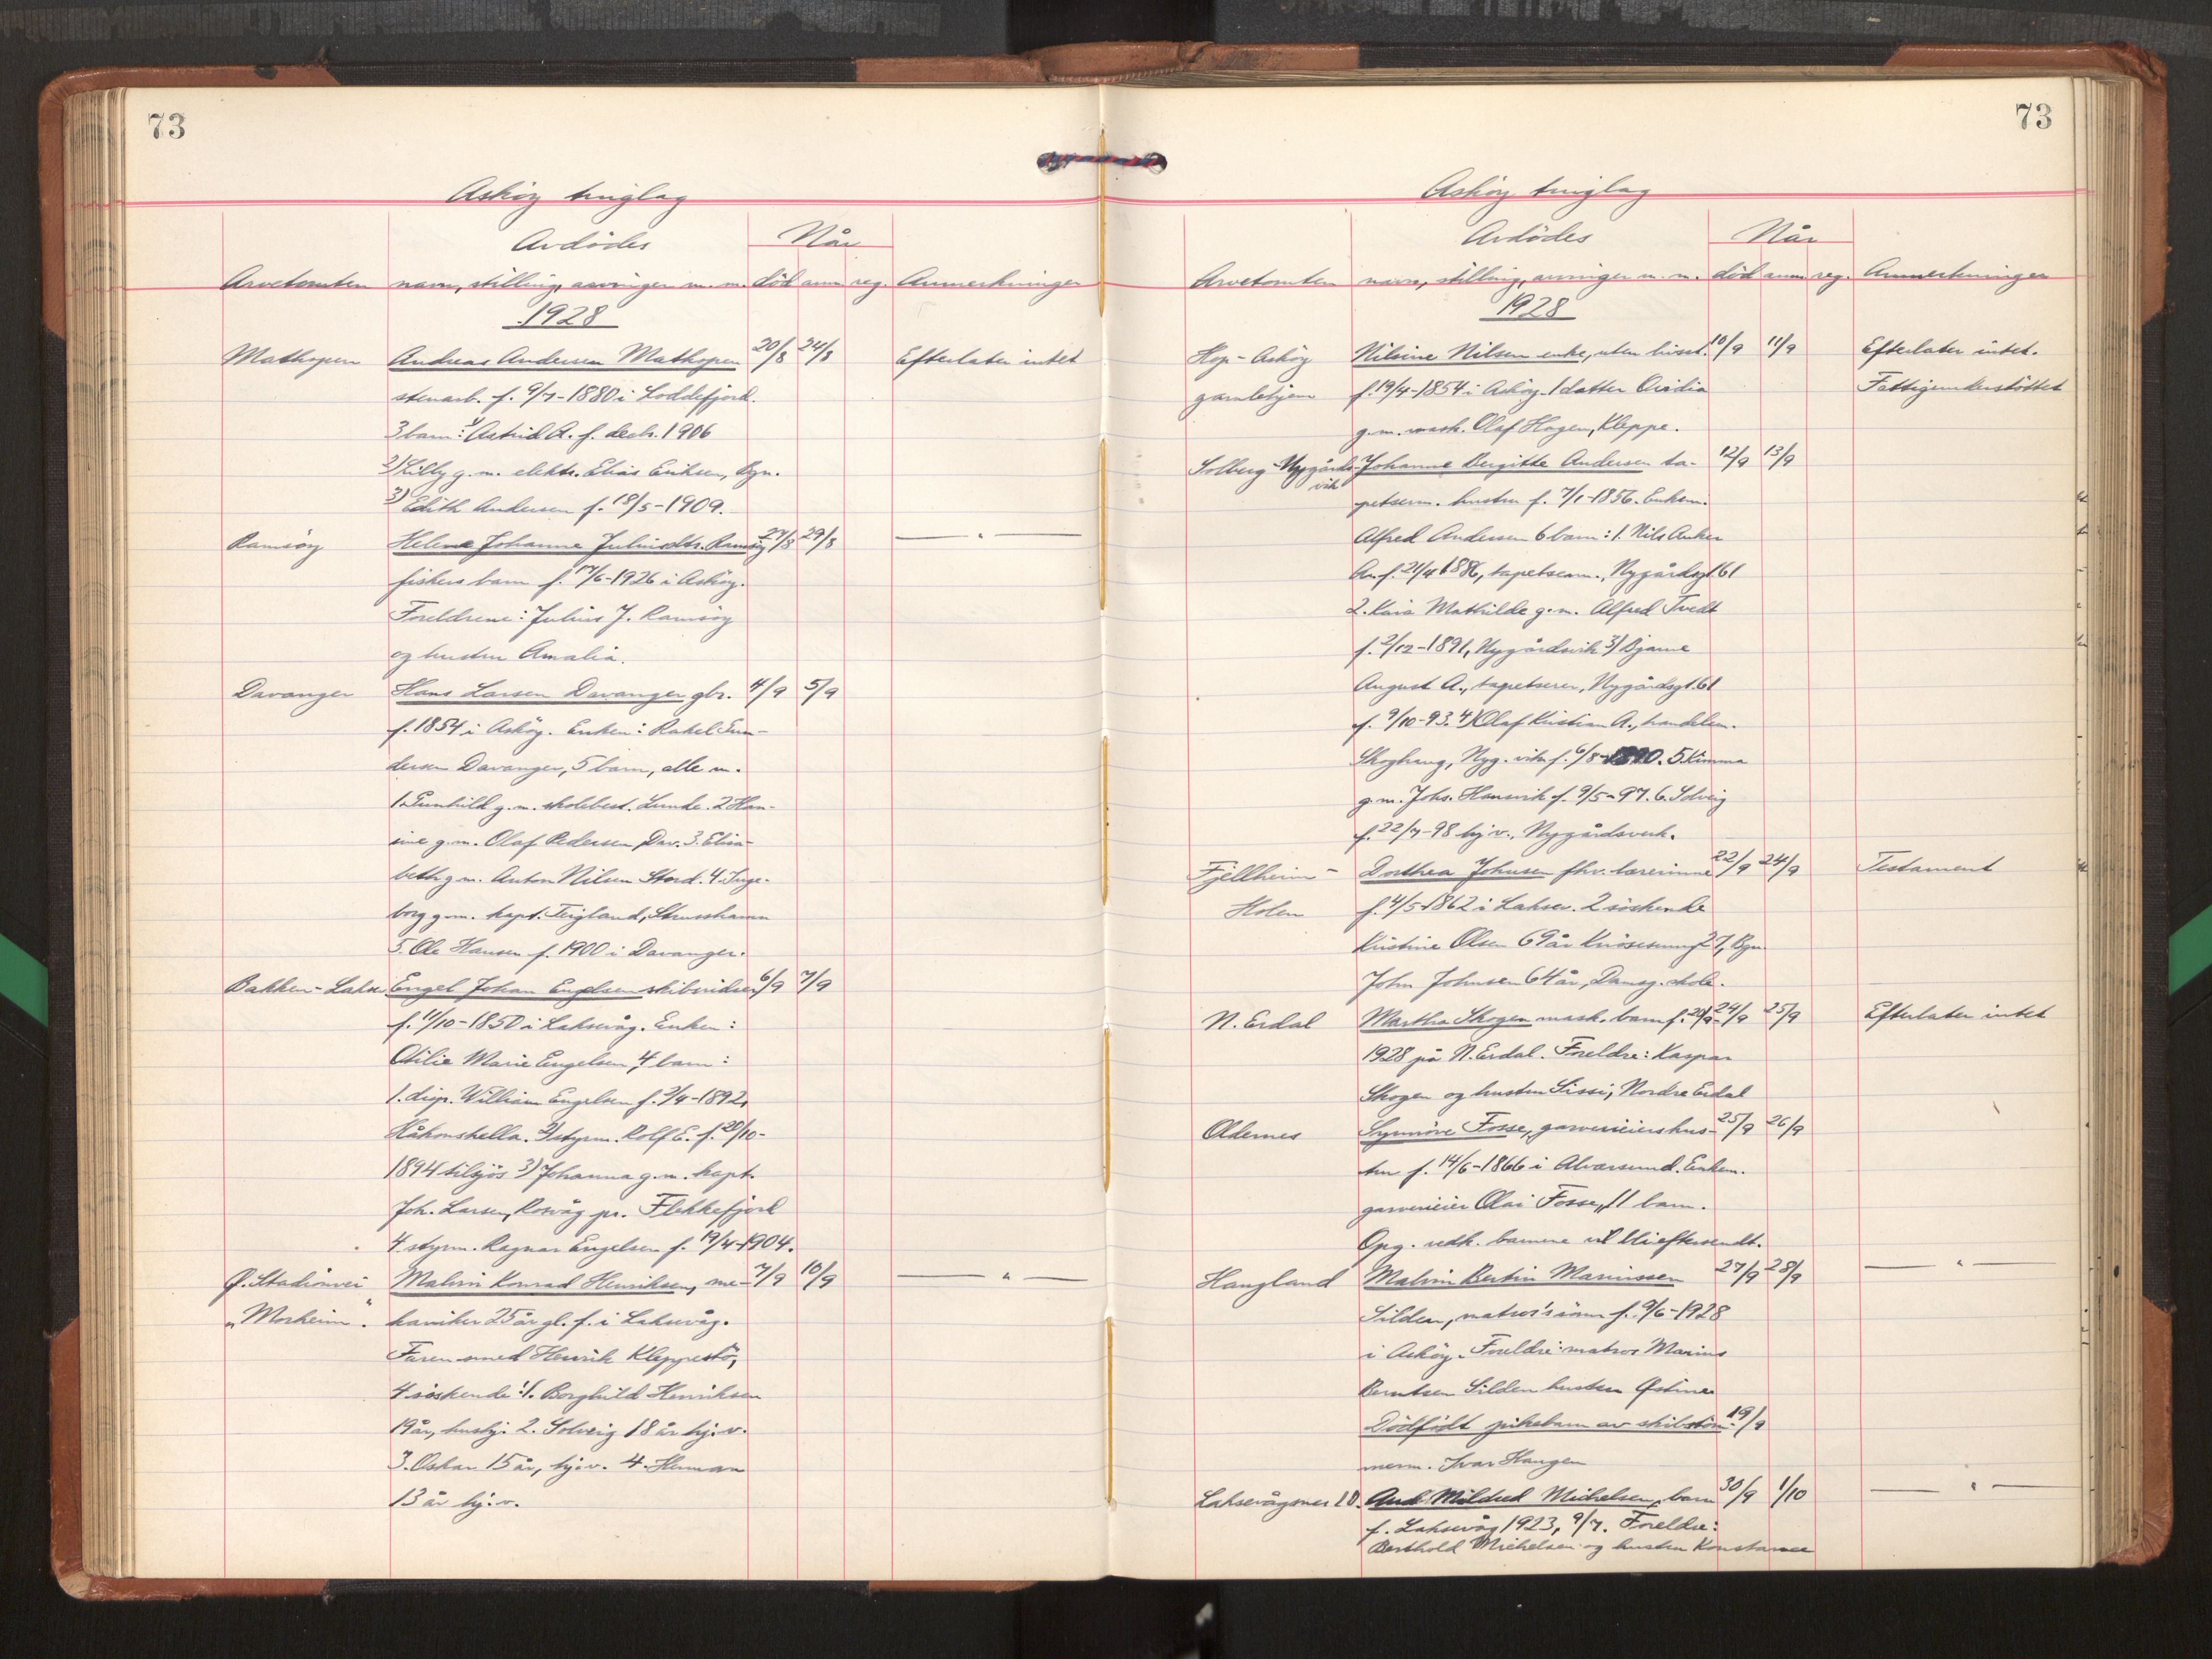 73
Askøy tinglag
Avdødes
Når
Arvetomten navn, stilling, arvinger m. m. död anm reg. Anmerkninger
1928
Mathopen Andreas Andersen Mathopen 20/8 24/8 Efterlater intet
stenarb. f. 9/7-1880 i Loddefjord.
3 barn: 1) Astrid A. f. decbr. 1906
2) Lilly g.m. elektr. Elias Eriksen, Bgn.
3) Edith Andersen f. 18/5-1909.
Ramsöy Helene Johanne Juliusdtr. Ramsöy 27/8 29/8 — " —
fiskers barn f. 17/6-1926 i Asköy.
Foreldrene: Julius J. Ramsöy
og hustru Amalia.
Davanger Hans Larsen Davanger gbr. 4/9 5/9
f. 1854 i Asköy. Enken: Rakel Gun-
dersen Davanger, 5 barn, alle m.
1. Gunhild g.m. skolebest. Lunde. 2 Han-
sine g.m. Olaf Pedersen Dav. 3. Elisa-
beth g.m. Anton Nilsen Stord. 4. Inge-
borg g.m. kapt. Teigland, Strusshamn
5. Ole Hansen f. 1900 i Davanger.
Bakken-Laksev. Engel Johan Engelsen skibsridser 6/9 7/9
f. 11/10-1850 i Laksevåg. Enken:
Otilie Marie Engelsen, 4 barn:
1. disp. William Engelsen f. 2/4-1892,
Håkonshella. 2) styrm. Rolf E. f. 20/10-
1894 tilsjös 3) Johanna g.m. kapt.
Joh. Larsen, Rosvåg pr. Flekkefjord
4 styrm. Ragnar Engelsen f. 19/4-1904.
Ø. Stadionvei Malvin Konrad Henriksen, me- 7/9 10/9 — " —
"Morheim". kaniker 25 år gl. f. i Laksevåg.
Faren smed Henrik Kleppestö,
4 söskende: 1. Borghild Henriksen
19 år, hushj. 2. Solveig 18 år hj.v.
3. Oskar 15 år, hj.v. 4. Herman
13 år hj.v.
73
Askøy tinglag
Avdødes
Når
Arvetomten navn, stilling, arvinger m. m. död anm reg. Anmerkninger
1928
Hop-Asköy Nilsine Nilsen enke, uten livsst. 10/9 11/9 Efterlater intet.
gamlehjem f. 19/4-1854 i Asköy. 1 datter Ovidia Fattigunderstöttet
g.m. mask. Olaf Hagen, Kleppe.
Solberg-Nygårds- Johanne Bergitte Andersen ta- 12/9 13/9
vik petserm. hustru f. 7/1-1856. Enkem.
Alfred Andersen 6 barn: 1. Nils Anker
An. f. 21/4 1886, tapetserm., Nygårdsgt. 61
2. Kaia Mathilde g.m. Alfred Tvedt
f. 2/12-1891, Nygårdsvik 3) Bjarne
August A., tapetserer, Nygårdsgt. 61
f. 9/10-93. 4) Olaf Kristian A., handelsm.
Skoghaug, Nyg. vik f. 6/8-1890. 5. Kimma
g.m. Johs. Hansvik f. 9/5-97. 6. Solveig
f. 22/7-98 hj.v., Nygårdsvik.
Fjellheim- Dorthea Johnsen fhv. lærerinne 22/9 24/9 Testament
Holen f. 4/5-1862 i Laksev. 2 söskende
Kristine Olsen 69 år Knösesmug 27, Bgn
John Johnsen 64 år, Damsg. skole.
N. Erdal Martha Skogen mask. barn f. 20/9- 24/9 25/9 Efterlater intet
1928 på N. Erdal. Foreldre: Kaspar
Skogen og hustru Sissi, Nordre Erdal
Oldernes Synnöve Fosse, garverieiers hus- 25/9 26/9
tru f. 14/6-1866 i Alversund. Enkem.
garverieier Olai Fosse, 11 barn.
Opg. vedk. barnene vil bli eftersendt.
Haugland Malvin Bertin Mariussen 27/9 28/9 — " —
Silden, matros's sönn f. 9/6-1928
i Asköy. Foreldre: matros Marius
Berntsen Silden hustru Østine
Dödfödt pikebarn av skibstöm- 19/9
merm. Ivar Haugen
Laksevågsnes 20. Aud Mildred Michelsen, barn 30/9 1/10 — " —
f. Laksevåg 1923, 9/7. Foreldre:
Berthold Michelsen og hustru Konstanse